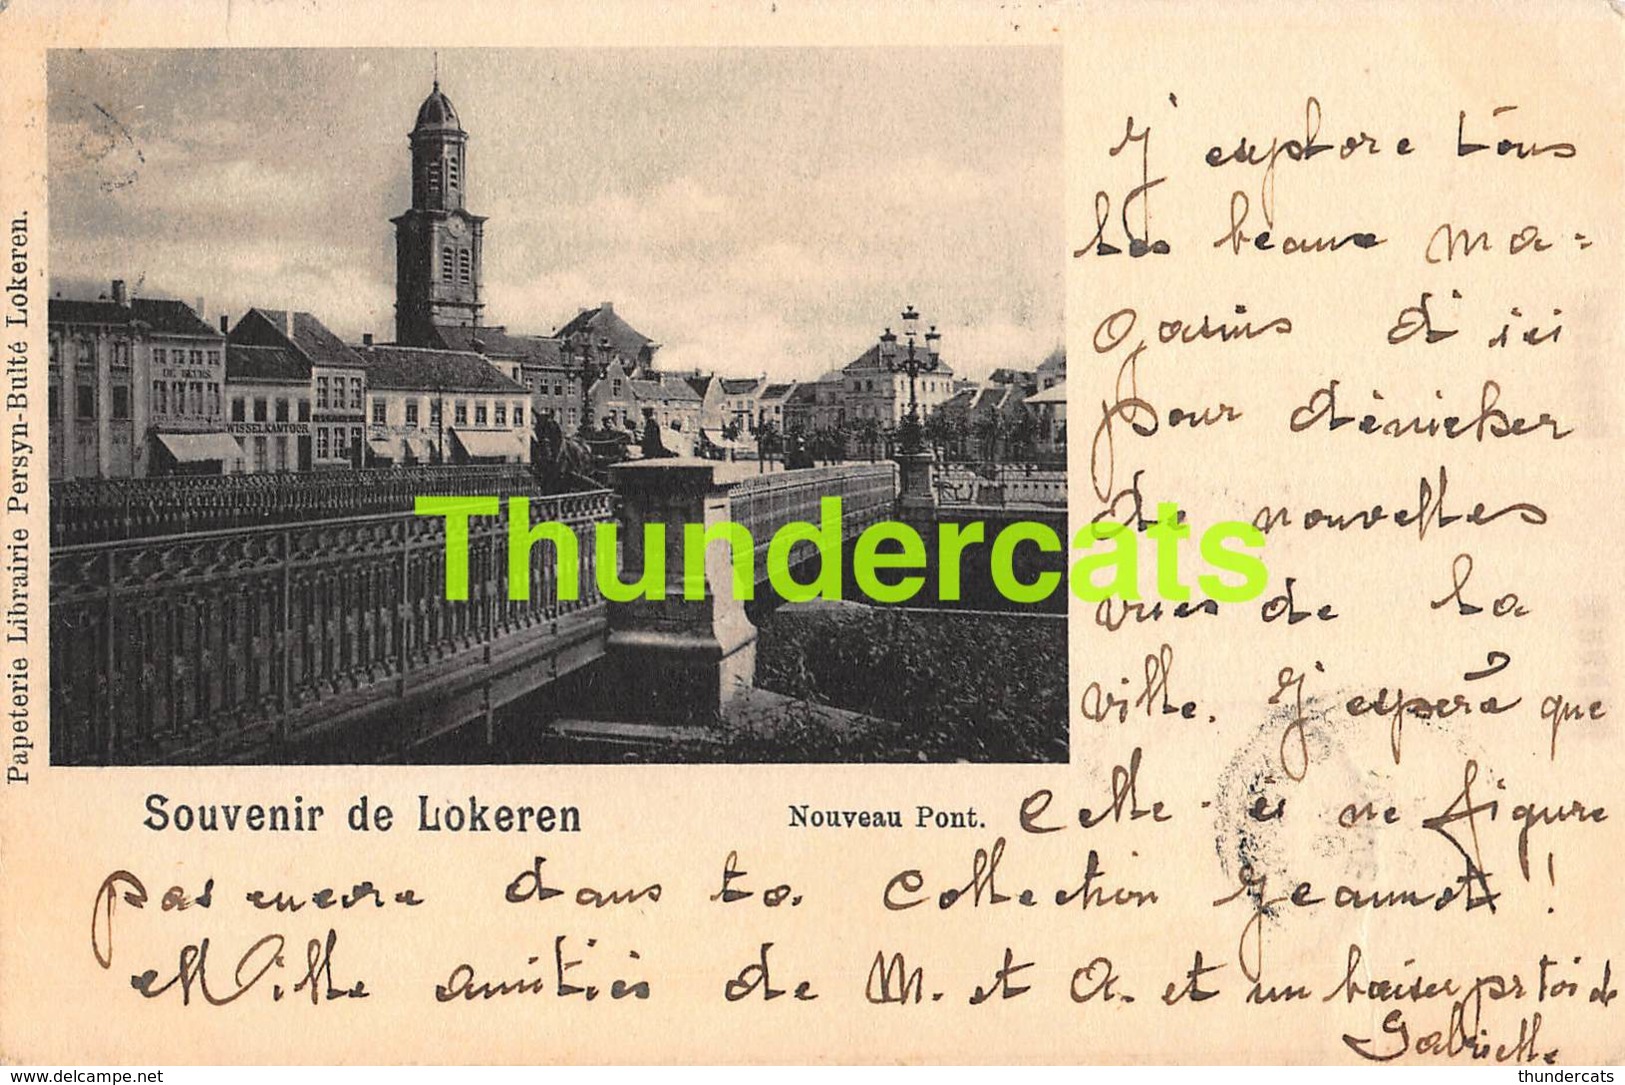 Papeterie Librairie Persyn-Bulté Lokeren.
DE BEURS
WISSELKANTOOR
Thundercats
Souvenir de Lokeren
Nouveau Pont.
J'explore tous
les beaux ma=
gasins d'ici
pour dénicher
de nouvelles
vues de la
ville. J'espère que
celle-ci ne figure
pas encore dans ta collection Jeannot!
Mille amitiés de M. et A. et un baiser pr toi de
Gabrielle
delcampe.net
thundercats